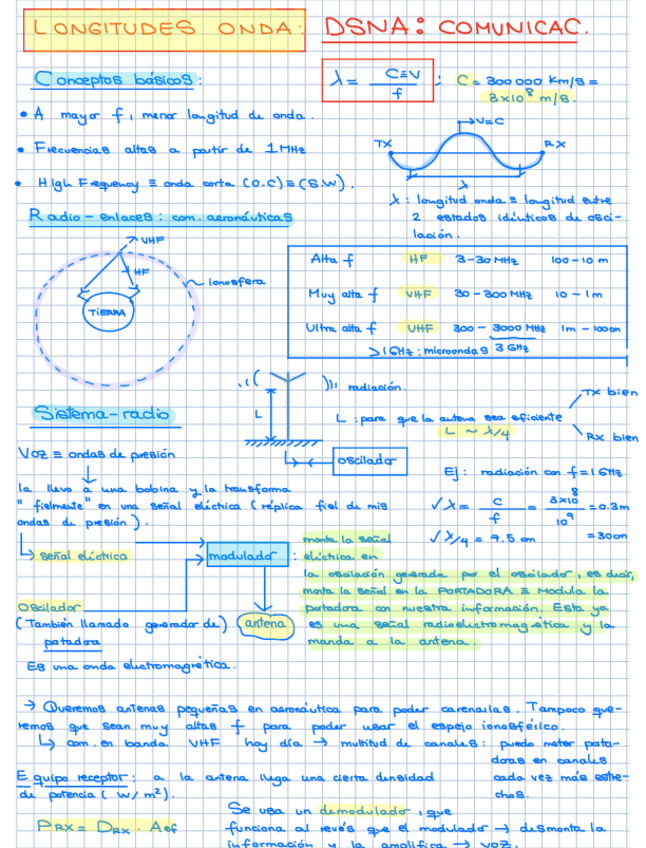 LONGITUDES ONDA: DSNA: COMUNICAC.
Conceptos básicos:
λ = C≡V / f ; C = 300 000 Km/s =
3x10⁸ m/s.
• A mayor f, menor longitud de onda.
• Frecuencias altas a partir de 1 MHz
• High Frequency ≡ onda corta (O.C) ≡ (S.W).
V=C
TX RX
λ
λ: longitud onda ≡ longitud entre
2 estados idénticos de osci-
lación.
Radio-enlaces: com. aeronáuticas
VHF
HF
ionosfera
TIERRA
Alta f HF 3-30 MHz 100-10 m
Muy alta f VHF 30-300 MHz 10-1m
Ultra alta f UHF 300-3000 MHz 1m-100cm
>1GHz: microondas 3 GHz
Sistema-radio
radiación.
L
L: para que la antena sea eficiente
L ~ λ/4
TX bien
RX bien
oscilador
Voz ≡ ondas de presión
la llevo a una bobina y la transforma
"fielmente" en una señal eléctrica (réplica fiel de mis
ondas de presión).
Ej: radiación con f = 1GHz
√ λ = c / f = 3x10⁸ / 10⁹ = 0.3m
= 30cm
√ λ/4 = 7.5 cm
señal eléctrica
modulador: monta la señal
eléctrica en
la oscilación generada por el oscilador, es decir,
monta la señal en la PORTADORA ≡ Modula la
portadora con nuestra información. Esta ya
es una señal radioelectromagnética y la
manda a la antena.
antena
Oscilador
(También llamado generador de)
portadora
Es una onda electromagnética.
→ Queremos antenas pequeñas en aeronáutica para poder carenarlas. Tampoco que-
remos que sean muy altas f para poder usar el espejo ionosférico.
↳ com. en banda VHF hoy día → multitud de canales: puedo meter porta-
doras en canales
cada vez más estre-
chos.
Equipo receptor: a la antena llega una cierta densidad
de potencia (W/m²).
PRX = DRX · Aef
Se usa un demodulador, que
funciona al revés que el modulador → desmonta la
información y la amplifica → voz.